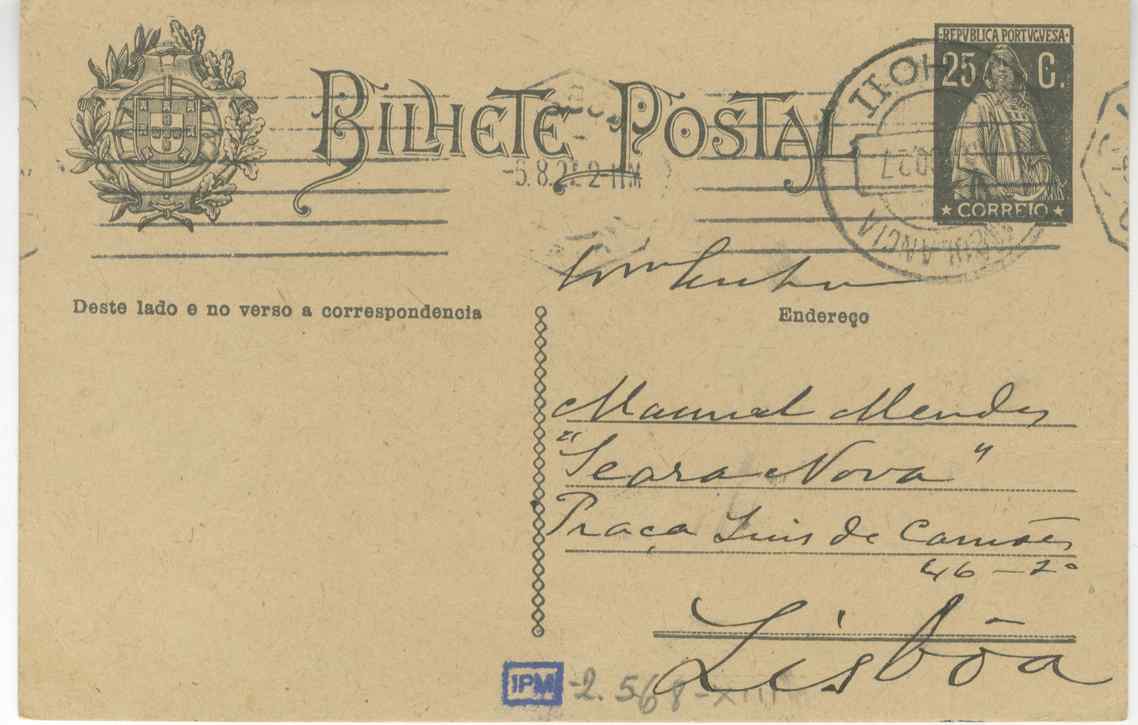 REPVBLICA PORTVGVESA
25 C.
CORREIO
BILHETE POSTAL
-5.8.27 2-11M
Deste lado e no verso a correspondencia
Endereço
Manuel Mendes
"Seara Nova"
Praça Luis de Camões
46-2º
Lisbôa
IPM -2.568-XIII